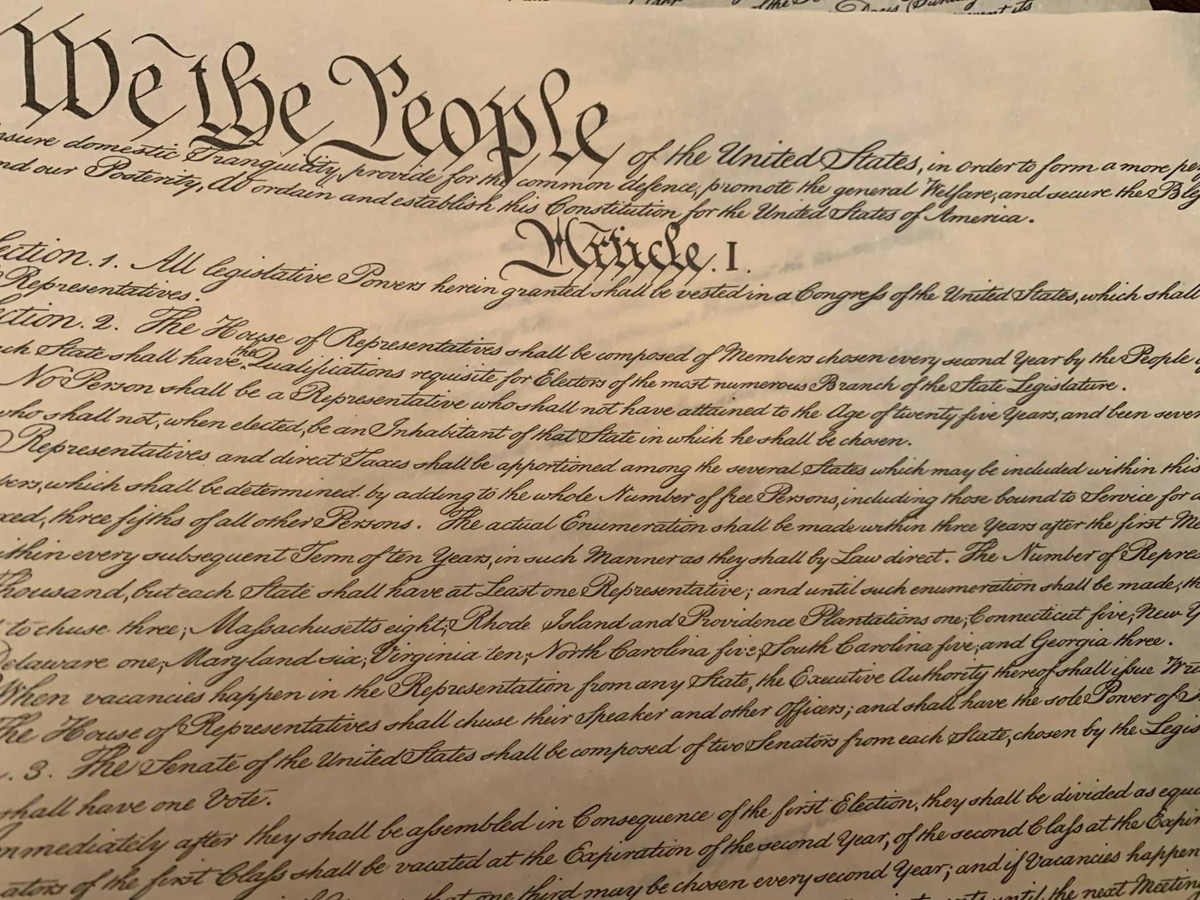 We the People of the United States, in order to form a more
domestic Tranquility, provide for the common defence, promote the general Welfare, and secure the
our Posterity, do ordain and establish this Constitution for the United States of America.
Article. I.
Section. 1. All legislative Powers herein granted shall be vested in a Congress of the United States, which shall
Representatives.
Section. 2. The House of Representatives shall be composed of Members chosen every second Year by the People
State shall have the Qualifications requisite for Electors of the most numerous Branch of the State Legislature.
No Person shall be a Representative who shall not have attained to the Age of twenty five Years, and been
who shall not, when elected, be an Inhabitant of that State in which he shall be chosen.
Representatives and direct Taxes shall be apportioned among the several States which may be included within this
which shall be determined by adding to the whole Number of free Persons, including those bound to Service for a
three fifths of all other Persons. The actual Enumeration shall be made within three Years after the first
within every subsequent Term of ten Years, in such Manner as they shall by Law direct. The Number of
Thousand, but each State shall have at Least one Representative; and until such enumeration shall be made,
to chuse three, Massachusetts eight, Rhode Island and Providence Plantations one, Connecticut five, New
Delaware one, Maryland six, Virginia ten, North Carolina five, South Carolina five, and Georgia three.
When vacancies happen in the Representation from any State, the Executive Authority thereof shall issue
The House of Representatives shall chuse their Speaker and other Officers; and shall have the sole Power of
3. The Senate of the United States shall be composed of two Senators from each State, chosen by the
shall have one Vote.
Immediately after they shall be assembled in Consequence of the first Election, they shall be divided as
of the first Class shall be vacated at the Expiration of the second Year, of the second Class at the
that one third may be chosen every second Year; and if Vacancies happen
until the next Meeting